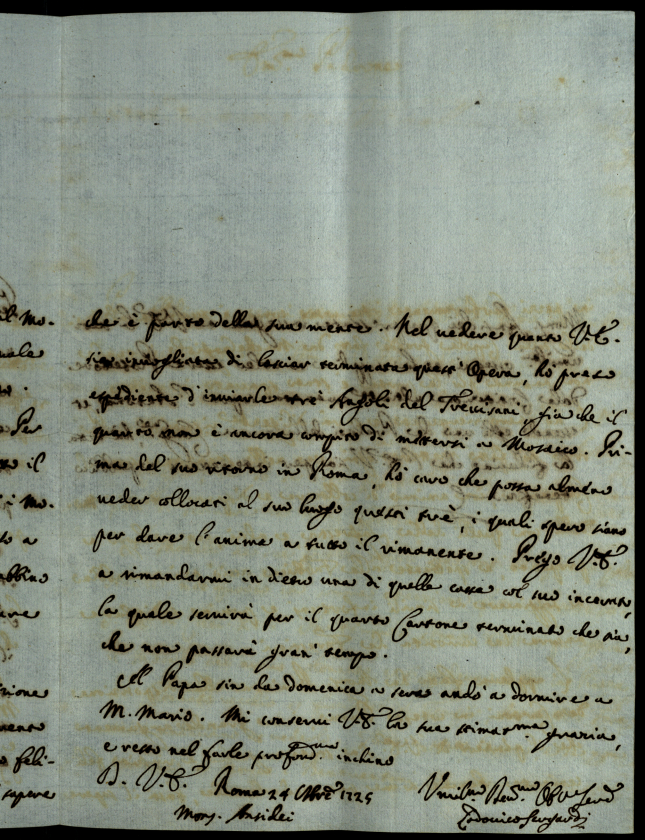 che è parto della sua mente. Nel vedere quanto V.E.
sia invogliata di lasciar terminata quest'Opera, hò preso
espediente d'inviarle trè Angoli del Trevisani già che il
quarto non è ancora compito di mettersi a Mosaico. Pri-
ma del suo ritorno in Roma, hò caro che possa almeno
veder collocati al suo luogo questi trè, i quali spero siano
per dare l'anima a tutto il rimanente. Prego V.E.
a rimandarmi in dietro una di quelle casse col suo incerato,
la quale servirà per il quarto Cartone terminato che sia,
che non passarà gran tempo.
Il Papa sin da domenica a sera andò a dormire a
M. Mario. Mi conservi V.E. la sua stimatma grazia,
e resto nel farle profondmo inchino
D. V.E. Roma 24 8bre 1725
Mons. Ansidei
Umilmo Devmo Obmo Servre
Lodovico Sergardi
al Mo-
uale
Per
il
i Mo-
to a
abbino
zione
mente
feli-
sapere